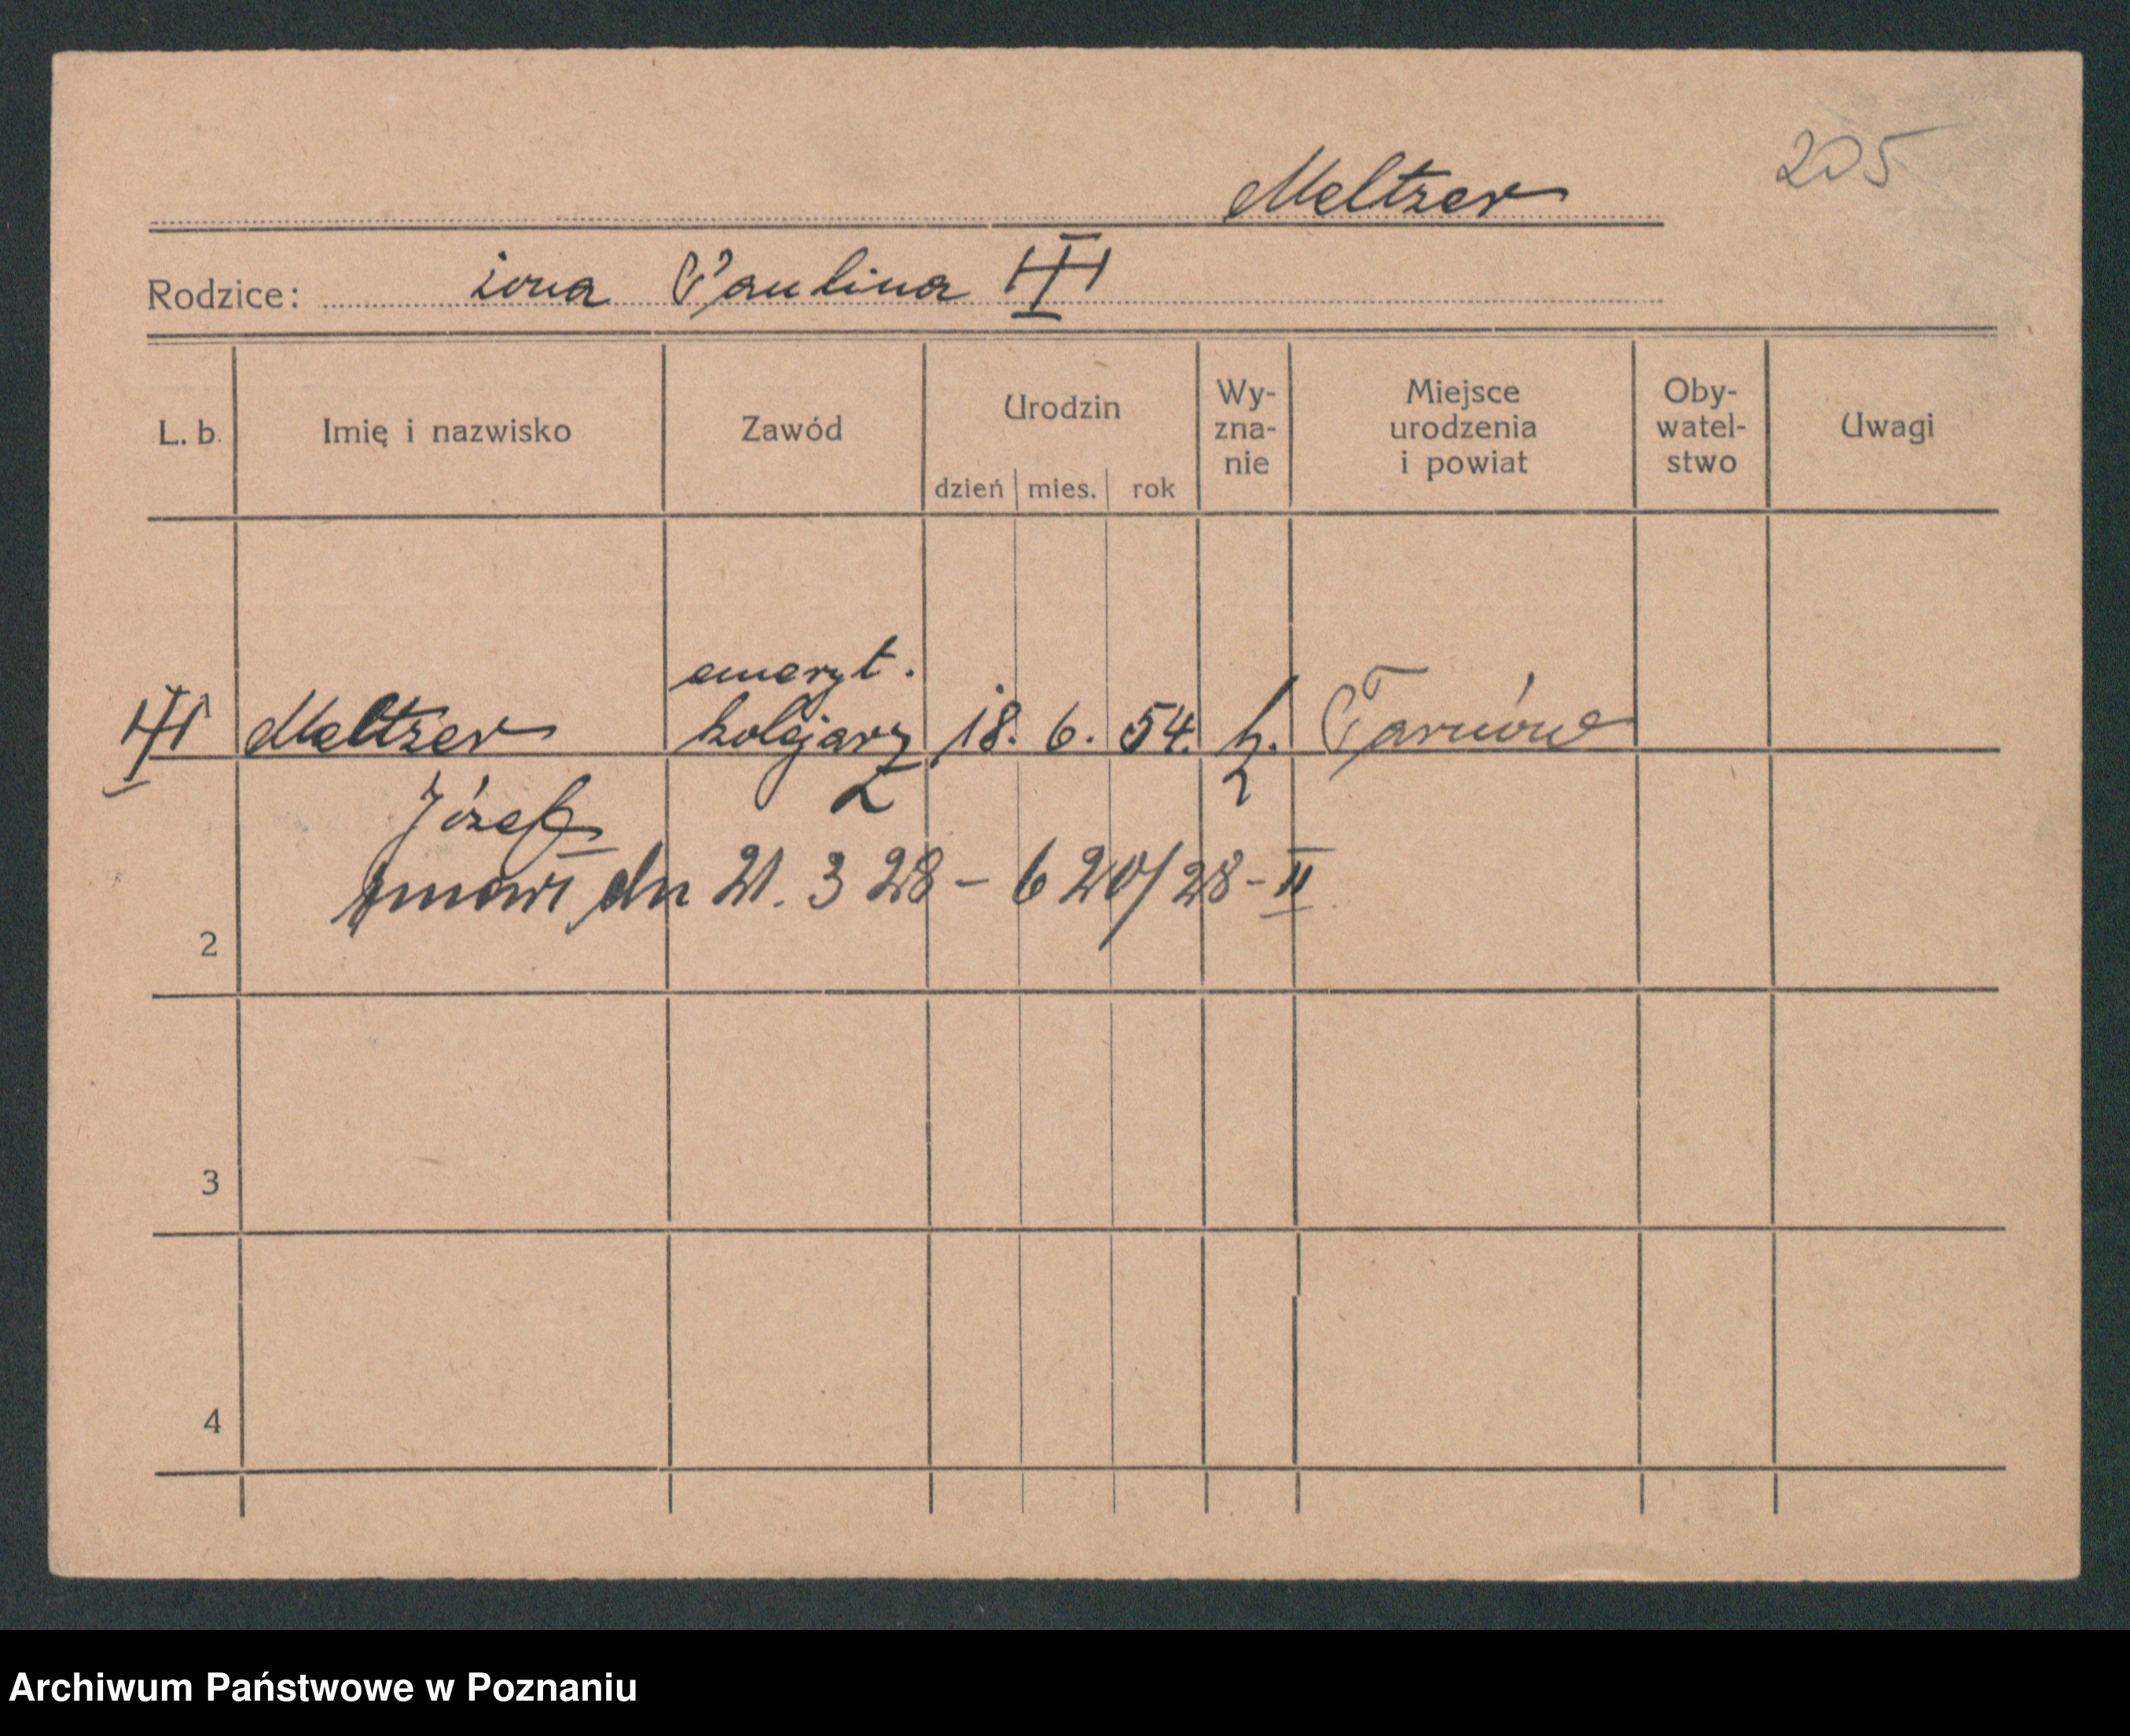 205
Meltzer
Rodzice: żona Paulina III
L. b. Imię i nazwisko Zawód Urodzin dzień mies. rok Wy-zna-nie Miejsce urodzenia i powiat Oby-watel-stwo Uwagi
emeryt.
III Meltzer kolejarz 18. 6. 54. k. Tarnów
Józef
dn 21. 3 28 – 620/28 – II
2
3
4
Archiwum Państwowe w Poznaniu